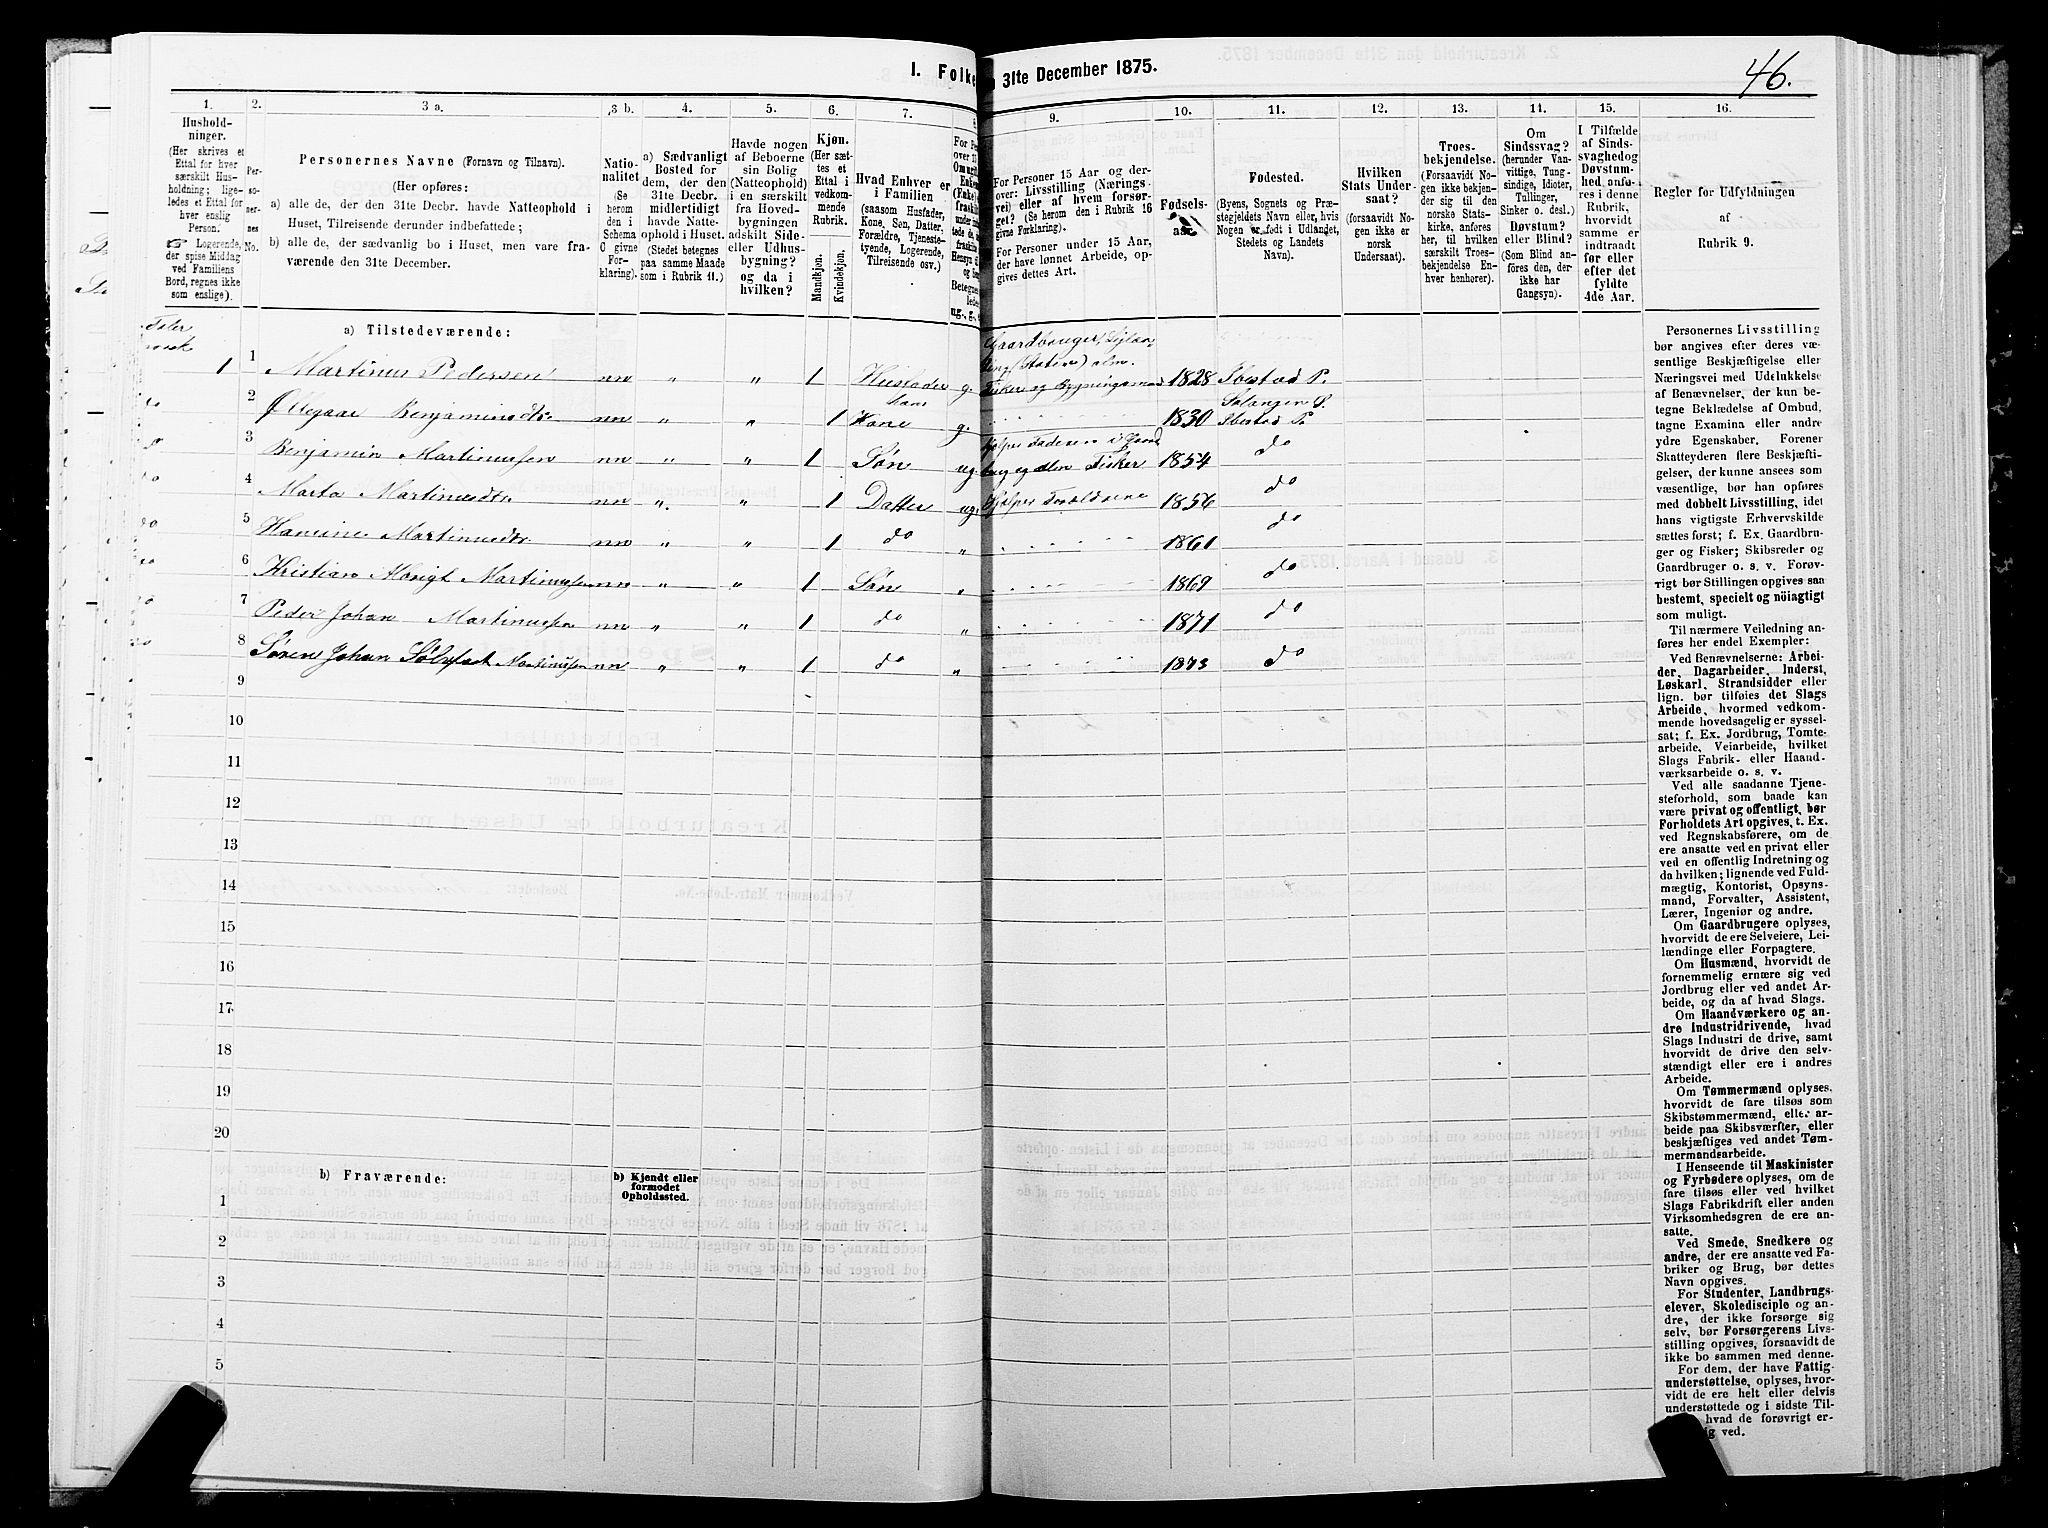 I. Folke
31te December 1875.
46.
1.
2.
3 a.
3 b.
4.
5.
6.
7.
8
9.
10.
11.
12.
13.
14.
15.
16.
Hushold-
ninger.
(Her skrives et
Ettal for hver
særskilt Hus-
holdning; lige-
ledes et Ettal for
hver enslig
Person.
☞ Logerende,
der spise Middag
ved Familiens
Bord, regnes ikke
som enslige).
Per-
so-
ner-
nes
No.
Personernes Navne (Fornavn og Tilnavn).
(Her opføres:
a) alle de, der den 31te Decbr. havde Natteophold i
Huset, Tilreisende derunder indbefattede;
b) alle de, der sædvanlig bo i Huset, men vare fra-
værende den 31te December.
Natio-
nalitet
(Se
herom
den i
Schema
O givne
For-
klaring).
a) Sædvanligt
Bosted for
dem, der den
31te Decbr.
midlertidigt
havde Natte-
ophold i Huset.
(Stedet betegnes
paa samme Maade
som i Rubrik 11.)
Havde nogen
af Beboerne
sin Bolig
(Natteophold)
i en særskilt
fra Hoved-
bygningen
adskilt Side-
eller Udhus-
bygning?
og da i
hvilken?
Kjøn.
(Her sæt-
tes et
Ettal i
vedkom-
mende
Rubrik.
Mandkjøn.
Kvindekjøn.
Hvad Enhver er
i Familien
(saasom Husfader,
Kone, Søn, Datter,
Forældre, Tjeneste-
tyende, Logerende,
Tilreisende osv.)
For Personer 15 Aar og der-
over: Livsstilling (Nærings-
vei) eller af hvem forsør-
get? (Se herom den i Rubrik 16
givne Forklaring).
For Personer under 15 Aar,
der have lønnet Arbeide, op-
gives dettes Art.
Fødsels-
aar.
Fødested.
(Byens, Sognets og Præ-
stegjeldets Navn eller, hvis
Nogen er født i Udlandet,
Stedets og Landets
Navn).
Hvilken
Stats Under-
saat?
(forsaavidt No-
gen ikke er
norsk
Undersaat).
Troes-
bekjendelse.
(Forsaavidt No-
gen ikke bekjen-
der sig til den
norske Stats-
kirke, anføres
her, til hvilken
særskilt Troes-
bekjendelse En-
hver henhører).
Om
Sindssvag?
(herunder Van-
vittige, Tung-
sindige, Idioter,
Tullinger,
Sinker o. desl.)
Døvstum?
eller Blind?
(Som Blind an-
føres den, der
ikke har
Gangsyn).
I Tilfælde
af Sinds-
svaghedog
Døvstum-
hed anfø-
res i denne
Rubrik,
hvorvidt
samme er
indtraadt
før eller
efter det
fyldte
4de Aar.
Regler for Udfyldningen
af
Rubrik 9.
a) Tilstedeværende:
1 1 Martinus Pedersen nn " " 1 Husfader g. Fisker og Bygningsmand 1828 Ibestad P.
2 Benjaminsdtr nn " " 1 Kone g. 1830 Salangen S. Ibestad P.
3 Benjamin Martinussen nn " " 1 Søn ug. 1854 do
4 Marta Martinusdtr nn " " 1 Datter ug. Hjelper Forældrene 1856 do
5 Hansine Martinusdtr nn " " 1 do " 1861 do
6 Kristian Martinussen nn " " 1 Søn " 1869 do
7 Peder Johan Martinussen nn " " 1 do " 1871 do
8 Søren Johan Martinussen nn " " 1 do " 1873 do
9
10
11
12
13
14
15
16
17
18
19
20
b) Fraværende:
b) Kjendt eller
formodet
Opholdssted.
1
2
3
4
5
Personernes Livsstilling
bør angives efter deres væ-
sentlige Beskjæftigelse eller
Næringsvei med Udelukkelse
af Benævnelser, der kun be-
tegne Beklædelse af Ombud,
tagne Examina eller andre
ydre Egenskaber. Forener
Skatteyderen flere Beskjæfti-
gelser, der kunne ansees som
væsentlige, bør han opføres
med dobbelt Livsstilling, idet
hans vigtigste Erhvervskilde
sættes først; f. Ex. Gaardbru-
ger og Fisker; Skibsreder og
Gaardbruger o. s. v. Forøv-
rigt bør Stillingen opgives saa
bestemt, specielt og nöiagtigt
som muligt.
Til nærmere Veiledning an-
føres her endel Exempler:
Ved Benævnelserne: Arbei-
der, Dagarbeider, Inderst,
Løskarl, Strandsidder eller
lign. bør tilføies det Slags
Arbeide, hvormed vedkom-
mende hovedsagelig er syssel-
sat; f. Ex. Jordbrug, Tomte-
arbeide, Veiarbeide, hvilket
Slags Fabrik- eller Haand-
værksarbeide o. s. v.
Ved alle saadanne Tjene-
steforhold, som baade kan
være privat og offentligt, bør
Forholdets Art opgives, t. Ex.
ved Regnskabsførere, om de
ere ansatte ved en privat eller
ved en offentlig Indretning og
da hvilken; lignende ved Fuld-
mægtig, Kontorist, Opsyns-
mand, Forvalter, Assistent,
Lærer, Ingeniør og andre.
Om Gaardbrugere oplyses,
hvorvidt de ere Selveiere, Lei-
lændinge eller Forpagtere.
Om Husmænd, hvorvidt de
fornemmelig ernære sig ved
Jordbrug eller ved andet Ar-
beide, og da af hvad Slags.
Om Haandværkere og an-
dre Industridrivende, hvad
Slags Industri de drive, samt
hvorvidt de drive den selv-
stændigt eller ere i andres
Arbeide.
Om Tømmermænd oplyses,
hvorvidt de fare tilsøs som
Skibstømmermænd, eller ar-
beide paa Skibsværfter, eller
beskjæftiges ved andet Tøm-
mermandsarbeide.
I Henseende til Maskinister
og Fyrbødere oplyses, om de
fare tilsøs eller ved hvilket
Slags Fabrikdrift eller anden
Virksomhedsgren de ere an-
satte.
Ved Smede, Snedkere og
andre, der ere ansatte ved Fa-
briker og Brug, bør dettes
Navn opgives.
For Studenter, Landbrugs-
elever, Skoledisciple og an-
dre, der ikke forsørge sig
selv, bør Forsørgerens Livs-
stilling opgives, forsaavidt de
ikke bo sammen med denne.
For dem, der have Fattig-
understøttelse, oplyses, hvor-
vidt de ere helt eller delvis
understøttede og i sidste Til-
hvad de forøvrigt er-
ved.